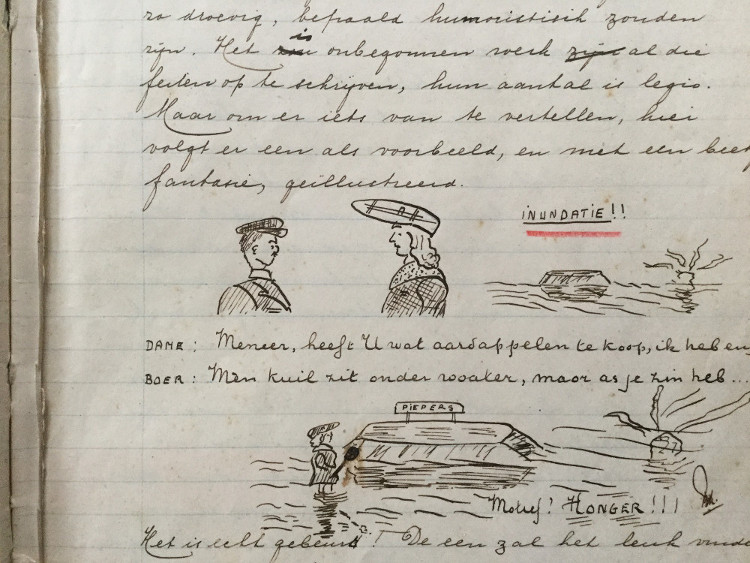 zo droevig, bepaald humoristisch zouden
zijn. Het is onbegonnen werk al die
feiten op te schrijven, hun aantal is legio.
Maar om er iets van te vertellen, hier
volgt er een als voorbeeld, en met een beet
fantasie, geïllustreerd.
INUNDATIE!!
DAME: Meneer, heeft U wat aardappelen te koop, ik heb en
BOER: M'n kuil zit onder woater, maor as je zin heb...
PIEPERS
Motief? HONGER!!!
Het is echt gebeurd! De een zal het leuk vinde